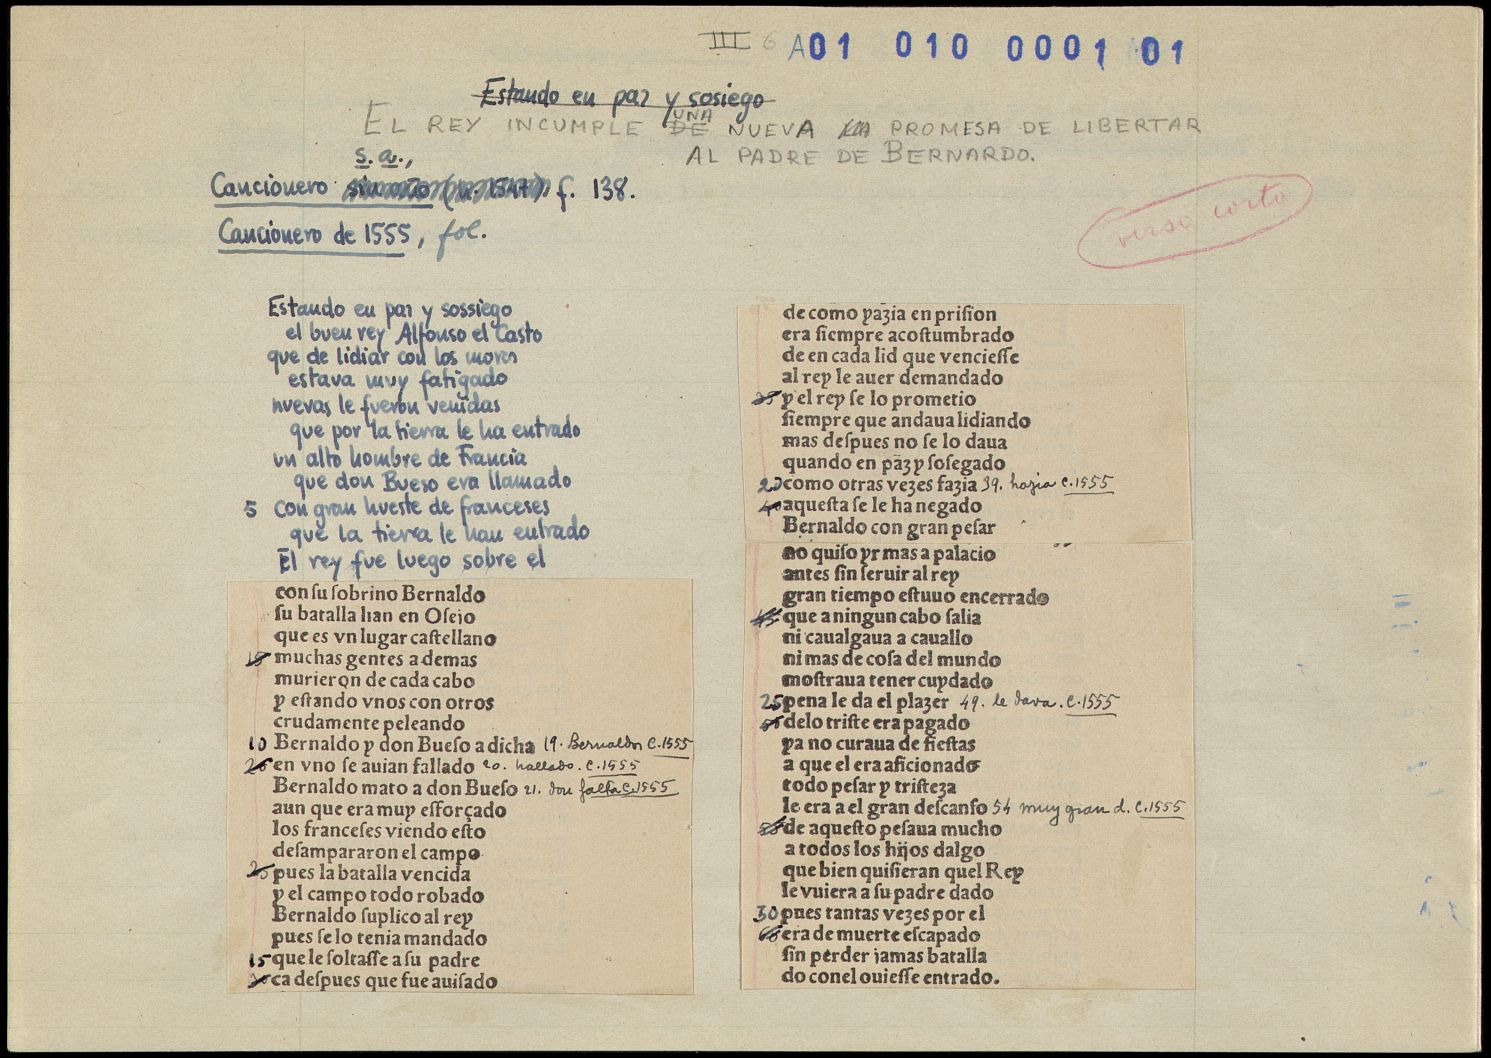 III 6 A01 010 0001 01
Estando en paz y sosiego
EL REY INCUMPLE DE UNA NUEVA PROMESA DE LIBERTAR
AL PADRE DE BERNARDO.
s.a.,
Cancionero sin año (n. 1547) f. 138.
Cancionero de 1555, fol.
verso corto
Estando en paz y sossiego
el buen rey Alfonso el Casto
que de lidiar con los moros
estava muy fatigado
nuevas le fueron venidas
que por la tierra le ha entrado
un alto hombre de Francia
que don Bueso era llamado
5 con gran hueste de franceses
que la tierra le han entrado
El rey fue luego sobre el
con ſu ſobrino Bernaldo
ſu batalla han en Oſejo
que es vn lugar caſtellano
15 muchas gentes a demas
murieron de cada cabo
y eſtando vnos con otros
crudamente peleando
10 Bernaldo y don Bueſo a dicha 19. Bernaldos C.1555
20 en vno ſe auian fallado 20. hallado. C.1555
Bernaldo mato a don Bueſo 21. don falta C.1555
aun que era muy eſforçado
los franceſes viendo eſto
deſampararon el campo
25 pues la batalla vencida
y el campo todo robado
Bernaldo ſuplico al rey
pues ſe lo tenia mandado
15 que le ſoltaſſe a ſu padre
30 ca deſpues que fue auiſado
de como yazia en priſion
era ſiempre acoſtumbrado
de en cada lid que vencieſſe
al rey le auer demandado
35 y el rey ſe lo prometio
ſiempre que andaua lidiando
mas deſpues no ſe lo daua
quando en paz y ſoſegado
20 como otras vezes fazia 39. hazia C.1555
40 aqueſta ſe le ha negado
Bernaldo con gran peſar
no quiſo yr mas a palacio
antes ſin ſeruir al rey
gran tiempo eſtuuo encerrado
45 que a ningun cabo ſalia
ni caualgaua a cauallo
ni mas de coſa del mundo
moſtraua tener cuydado
25 pena le da el plazer 49. le dava. C.1555
50 delo triſte era pagado
ya no curaua de fieſtas
a que el era aficionado
todo peſar y triſteza
le era a el gran deſcanſo 54 muy gran d. C.1555
55 de aqueſto peſaua mucho
a todos los hijos dalgo
que bien quiſieran quel Rey
le vuiera a ſu padre dado
30 pues tantas vezes por el
60 era de muerte eſcapado
ſin perder jamas batalla
do conel ouieſſe entrado.